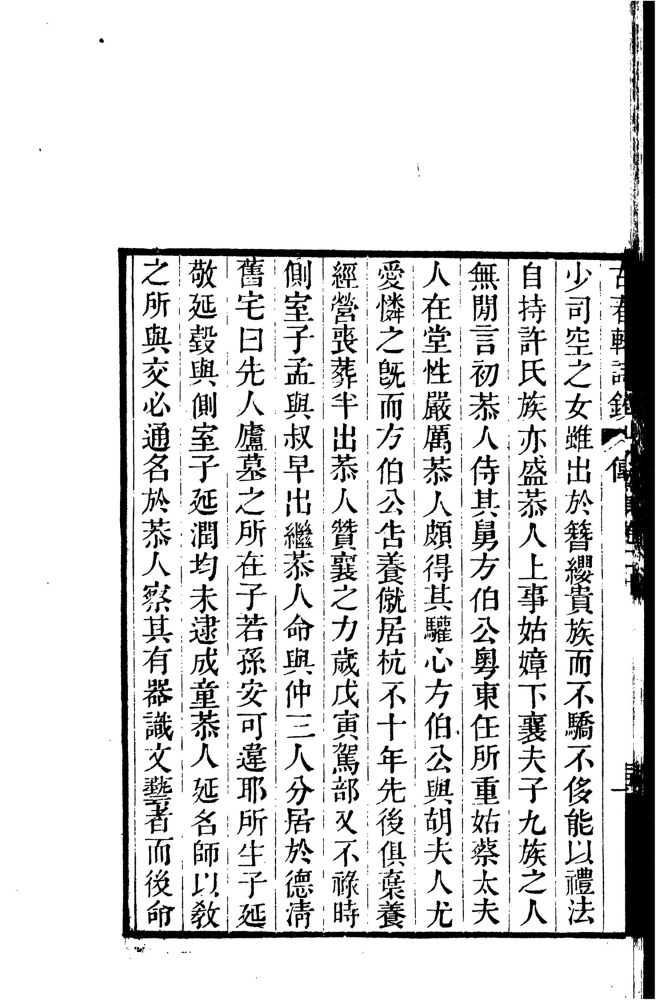 古春軒詩鈔 傳
少司空之女雖出於簪纓貴族而不驕不侈能以禮法
自持許氏族亦盛恭人上事姑嫜下襄夫子九族之人
無閒言初恭人侍其舅方伯公粵東任所重姑蔡太夫
人在堂性嚴厲恭人頗得其驩心方伯公與胡夫人尤
愛憐之旣而方伯公告養僦居杭不十年先後俱棄養
經營喪葬半出恭人贊襄之力歲戊寅駕部又不祿時
側室子孟與叔早出繼恭人命與仲三人分居於德淸
舊宅曰先人廬墓之所在子若孫安可違耶所生子延
敬延瑴與側室子延潤均未逮成童恭人延名師以敎
之所與交必通名於恭人察其有器識文藝者而後命